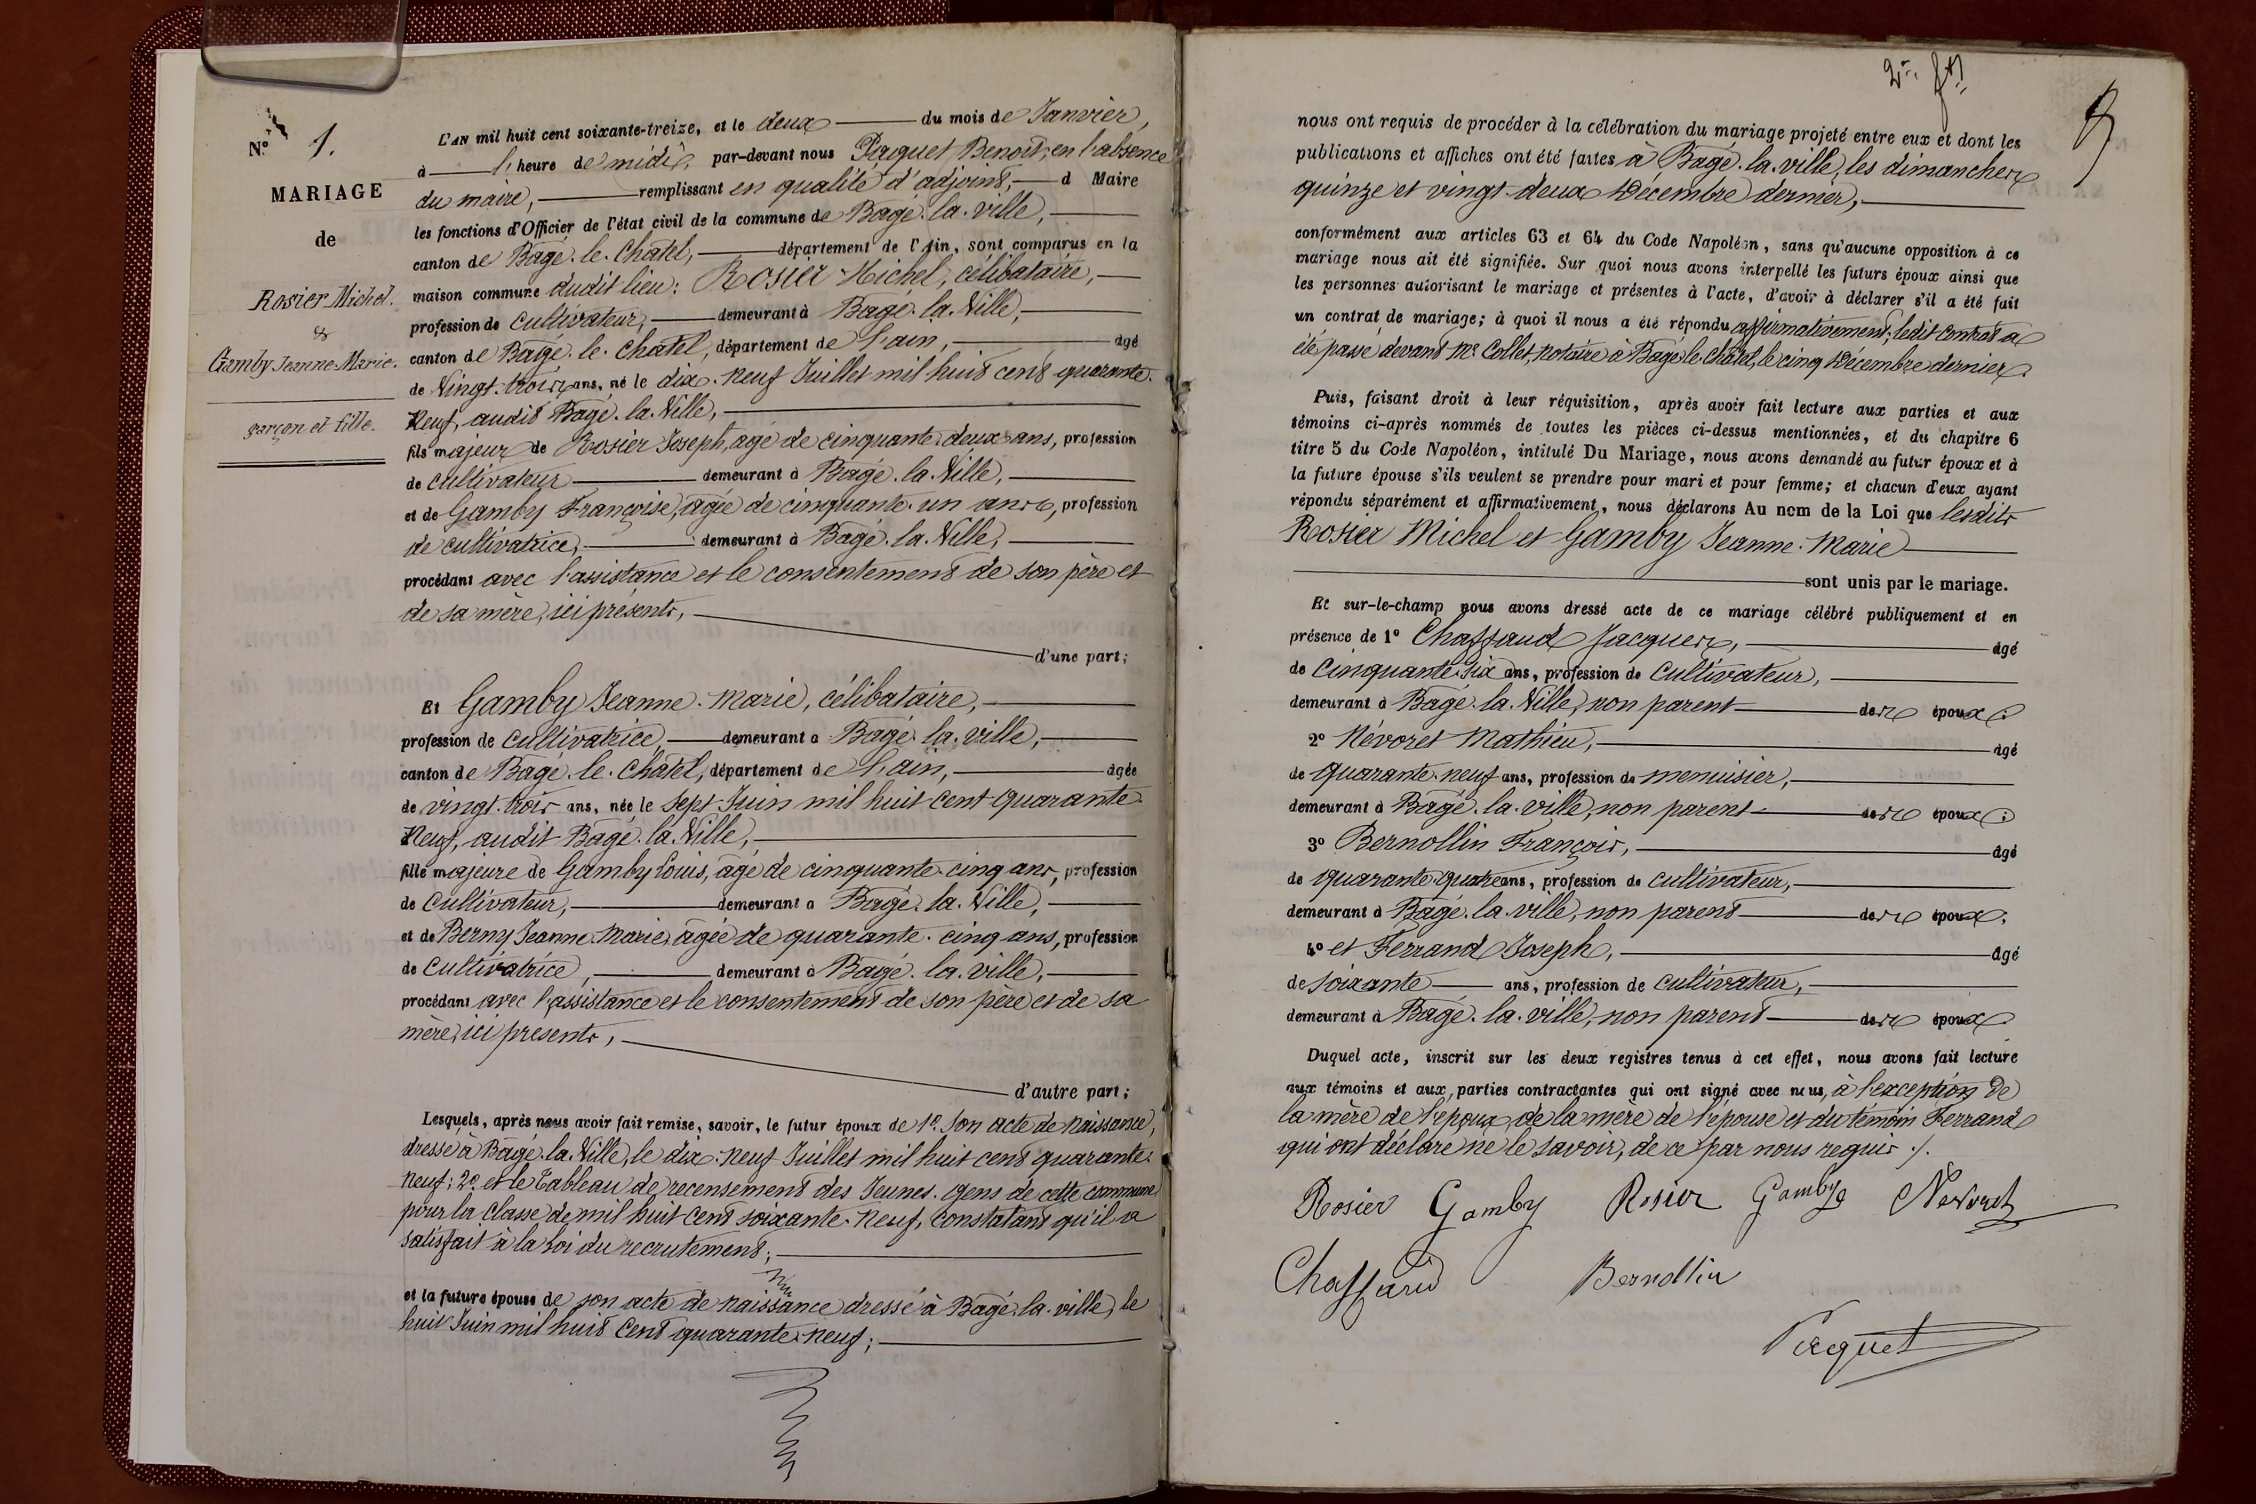 N.° 1.
MARIAGE
de
Rosier Michel.
&
Gamby Jeanne-Marie.
garçon et fille.
L'AN mil huit cent soixante-treize, et le deux du mois de Janvier,
à l' heure de midi, par-devant nous Pacquet Benoît, en l'absence
du maire, remplissant en qualité d'adjoint, d Maire
les fonctions d'Officier de l'état civil de la commune de Bagé-la-ville,
canton de Bagé-le-Châtel, département de l'Ain, sont comparus en la
maison commune dudit lieu: Rosier Michel, célibataire,
profession de cultivateur, demeurant à Bagé-la-Ville,
canton de Bagé-le-Châtel, département de l'ain, âgé
de Vingt-trois ans, né le dix-neuf Juillet mil huit cent quarante-
Neuf, audit Bagé-la-Ville,
fils majeur de Rosier Joseph, âgé de cinquante-deux ans, profession
de cultivateur demeurant à Bagé-la-Ville,
et de Gamby Françoise, âgée de cinquante-un ans, profession
de cultivatrice, demeurant à Bagé-la-Ville,
procédant avec l'assistance et le consentement de son père et
de sa mère, ici présents,
d'une part;
Et Gamby Jeanne-Marie, célibataire,
profession de cultivatrice demeurant à Bagé-la-ville,
canton de Bagé-le-Châtel, département de l'ain, âgée
de vingt-trois ans, née le sept Juin mil huit cent quarante-
Neuf, audit Bagé-la-Ville,
fille majeure de Gamby Louis, âgé de cinquante-cinq ans, profession
de cultivateur, demeurant à Bagé-la-Ville,
et de Berny Jeanne-Marie, âgée de quarante-cinq ans, profession
de cultivatrice, demeurant à Bagé-la-ville,
procédant avec l'assistance et le consentement de son père et de sa
mère, ici présents,
d'autre part;
Lesquels, après nous avoir fait remise, savoir, le futur époux de 1°. Son acte de Naissance,
dressé à Bagé-la-Ville, le dix-neuf Juillet mil huit cent quarante-
Neuf; 2°. et le Tableau de recensement des Jeunes-gens de cette commune
pour la classe de mil huit cent soixante-neuf, constatant qu'il a
satisfait à la Loi du recrutement;
et la future épouse de son acte de naissance dressé à Bagé-la-ville, le
huit Juin mil huit Cent quarante-neuf;
nous ont requis de procéder à la célébration du mariage projeté entre eux et dont les
publications et affiches ont été faites à Bagé-la-ville, les dimanches
quinze et vingt-deux Décembre dernier,
conformément aux articles 63 et 64 du Code Napoléon, sans qu'aucune opposition à ce
mariage nous ait été signifiée. Sur quoi nous avons interpellé les futurs époux ainsi que
les personnes autorisant le mariage et présentes à l'acte, d'avoir à déclarer s'il a été fait
un contrat de mariage; à quoi il nous a été répondu affirmativement; ledit contrat a
été passé devant Me. Collet, notaire à Bagé-le-Châtel, le cinq Décembre dernier.
Puis, faisant droit à leur réquisition, après avoir fait lecture aux parties et aux
témoins ci-après nommés de toutes les pièces ci-dessus mentionnées, et du chapitre 6
titre 5 du Code Napoléon, intitulé Du Mariage, nous avons demandé au futur époux et à
la future épouse s'ils veulent se prendre pour mari et pour femme; et chacun d'eux ayant
répondu séparément et affirmativement, nous déclarons Au nom de la Loi que lesdits
Rosier Michel et Gamby Jeanne-Marie
sont unis par le mariage.
Et sur-le-champ nous avons dressé acte de ce mariage célébré publiquement et en
présence de 1° Chaffaud Jacques, âgé
de Cinquante-six ans, profession de Cultivateur,
demeurant à Bagé-la-Ville, non parent des époux.
2° Névoret Mathieu, âgé
de quarante-neuf ans, profession de menuisier,
demeurant à Bagé-la-ville, non parent des époux.
3° Bernollin François, âgé
de quarante-quatre ans, profession de cultivateur,
demeurant à Bagé-la-ville, non parent des époux.
4° et Ferrand Joseph, âgé
de soixante ans, profession de cultivateur,
demeurant à Bagé-la-ville, non parent des époux.
Duquel acte, inscrit sur les deux registres tenus à cet effet, nous avons fait lecture
aux témoins et aux parties contractantes qui ont signé avec nous, à l'exception de
la mère de l'époux, de la mère de l'épouse et du témoin Ferrand
qui ont déclaré ne le savoir, de ce par nous requis ./.
Rosier Gamby Rosier Gamby Névoret
Chaffaud Bernollin
Pacquet